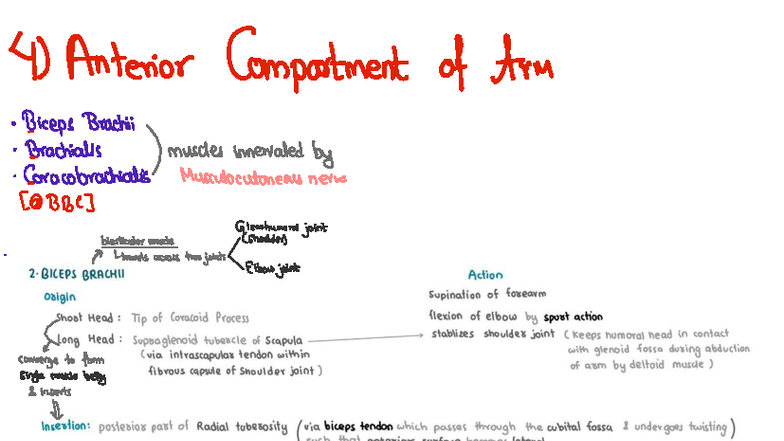 4) Anterior Compartment of Arm
• Biceps Brachii
• Brachialis
• Coracobrachialis
muscles innervated by
Musculocutaneous nerve
[@BBC]
biarticular muscle
travels across two joints
Glenohumeral joint
(Shoulder)
Elbow joint
2· BICEPS BRACHII
Origin
Short Head : Tip of Coracoid Process
Long Head : Supraglenoid tubercle of Scapula
(via intrascapular tendon within
fibrous capsule of Shoulder joint)
converge to form
single muscle belly
& inserts
Action
Supination of forearm
flexion of elbow by spurt action
stablizes shoulder joint (keeps humoral head in contact
with glenoid fossa during abduction
of arm by deltoid muscle)
Insertion: posterior part of Radial tuberosity (via biceps tendon which passes through the cubital fossa & undergoes twisting)
such that anterior surface becomes lateral